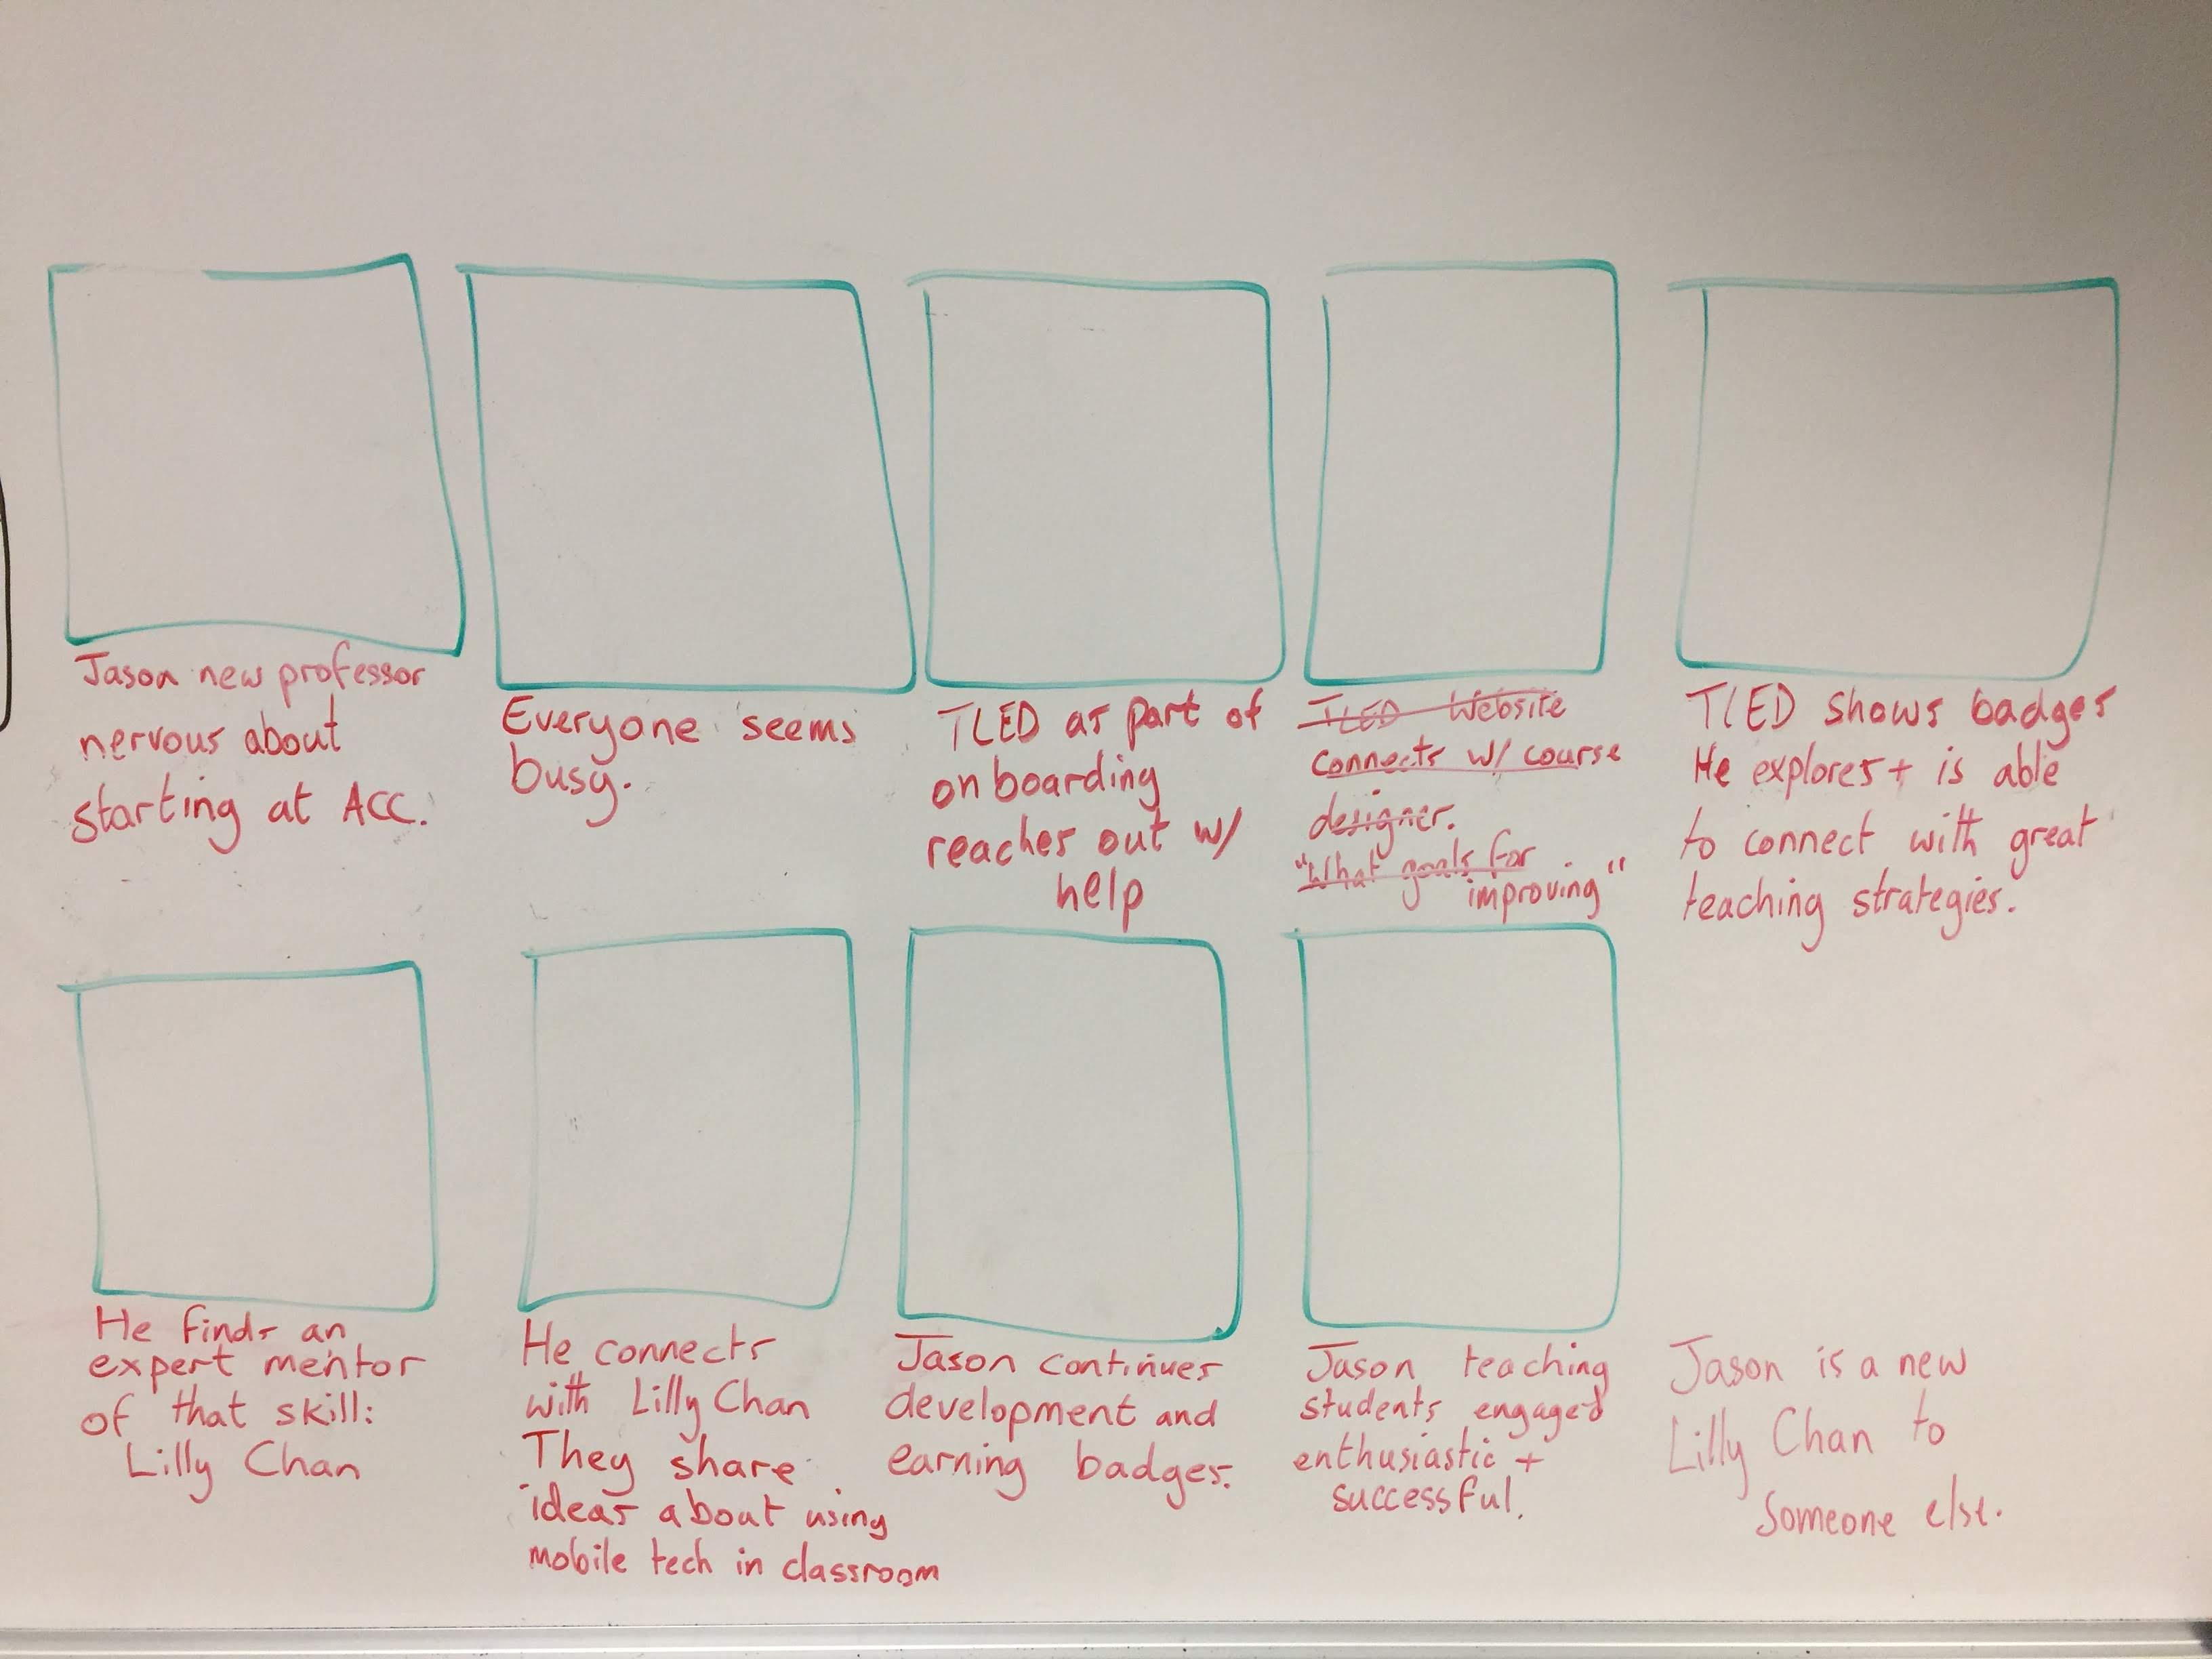 Jason new professor
nervous about
starting at ACC.
Everyone seems
busy.
TLED as part of
onboarding
reaches out w/
help
TLED Website
connects w/ course
designer.
"What goals for
improving"
TLED shows badges
He explores + is able
to connect with great
teaching strategies.
He finds an
expert mentor
of that skill:
Lilly Chan
He connects
with Lilly Chan
They share
ideas about using
mobile tech in classroom
Jason continues
development and
earning badges.
Jason teaching
students engaged
enthusiastic +
successful.
Jason is a new
Lilly Chan to
someone else.